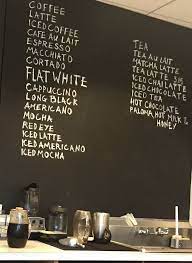 COFFEE
LATTE
ICED COFFEE
CAFE AU LAIT
ESPRESSO
MACCHIATO
CORTADO
FLAT WHITE
CAPPUCCINO
LONG BLACK
AMERICANO
MOCHA
RED EYE
ICED LATTE
ICED AMERICANO
ICED MOCHA
TEA
TEA AU LAIT
MATCHA LATTE
TEA LATTE
ICED CHAI LATTE
ICED CHOCOLATE
ICED TEA
HOT CHOCOLATE
PALOMA, HOT MILK &
HONEY